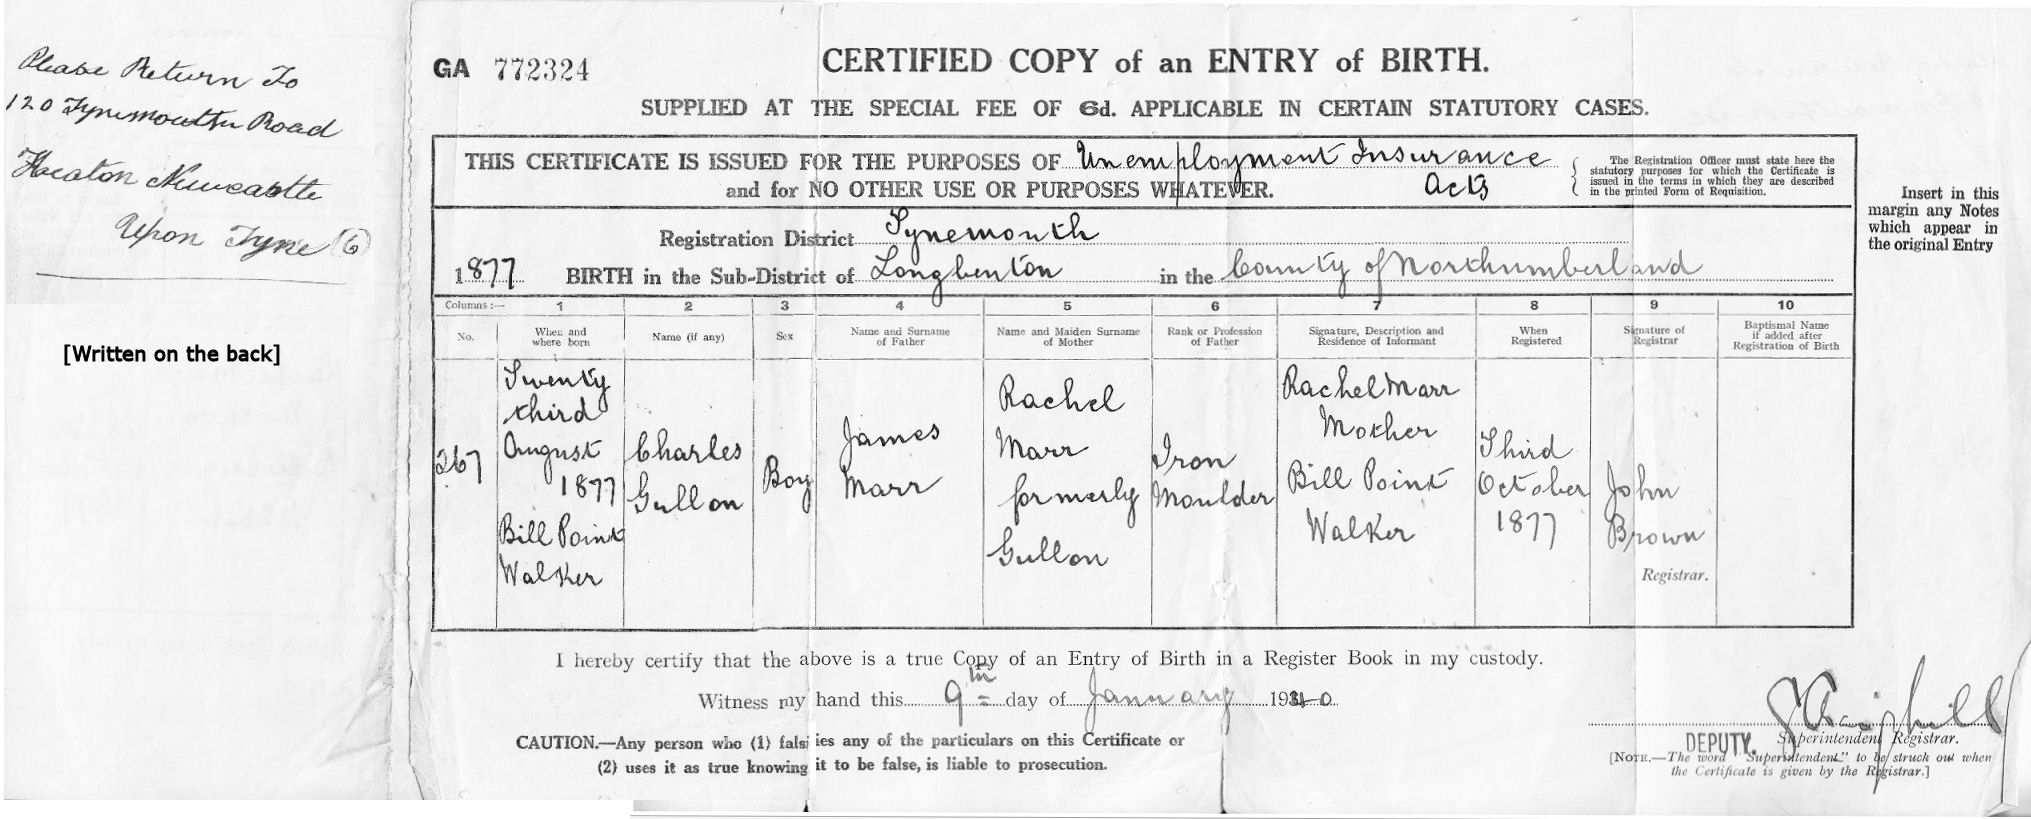 Please Return To
120 Tynemouth Road
Heaton Newcastle
Upon Tyne (6)
[Written on the back]
GA 772324
CERTIFIED COPY of an ENTRY of BIRTH.
SUPPLIED AT THE SPECIAL FEE OF 6d. APPLICABLE IN CERTAIN STATUTORY CASES.
THIS CERTIFICATE IS ISSUED FOR THE PURPOSES OF Unemployment Insurance
and for NO OTHER USE OR PURPOSES WHATEVER. Acts
The Registration Officer must state here the
statutory purposes for which the Certificate is
issued in the terms in which they are described
in the printed Form of Requisition.
Insert in this
margin any Notes
which appear in
the original Entry
Registration District Tynemouth
1877 BIRTH in the Sub-District of Longbenton in the County of Northumberland
Columns:— 1 2 3 4 5 6 7 8 9 10
No.
When and
where born
Name (if any)
Sex
Name and Surname
of Father
Name and Maiden Surname
of Mother
Rank or Profession
of Father
Signature, Description and
Residence of Informant
When
Registered
Signature of
Registrar
Baptismal Name
if added after
Registration of Birth
267
Twenty
third
August
1877
Bill Point
Walker
Charles
Gullon
Boy
James
Marr
Rachel
Marr
formerly
Gullon
Iron
Moulder
Rachel Marr
Mother
Bill Point
Walker
Third
October
1877
John
Brown
Registrar.
I hereby certify that the above is a true Copy of an Entry of Birth in a Register Book in my custody.
Witness my hand this 9th day of January 1940
CAUTION.—Any person who (1) falsifies any of the particulars on this Certificate or
(2) uses it as true knowing it to be false, is liable to prosecution.
DEPUTY. Superintendent Registrar.
[NOTE.—The word "Superintendent" to be struck out when
the Certificate is given by the Registrar.]